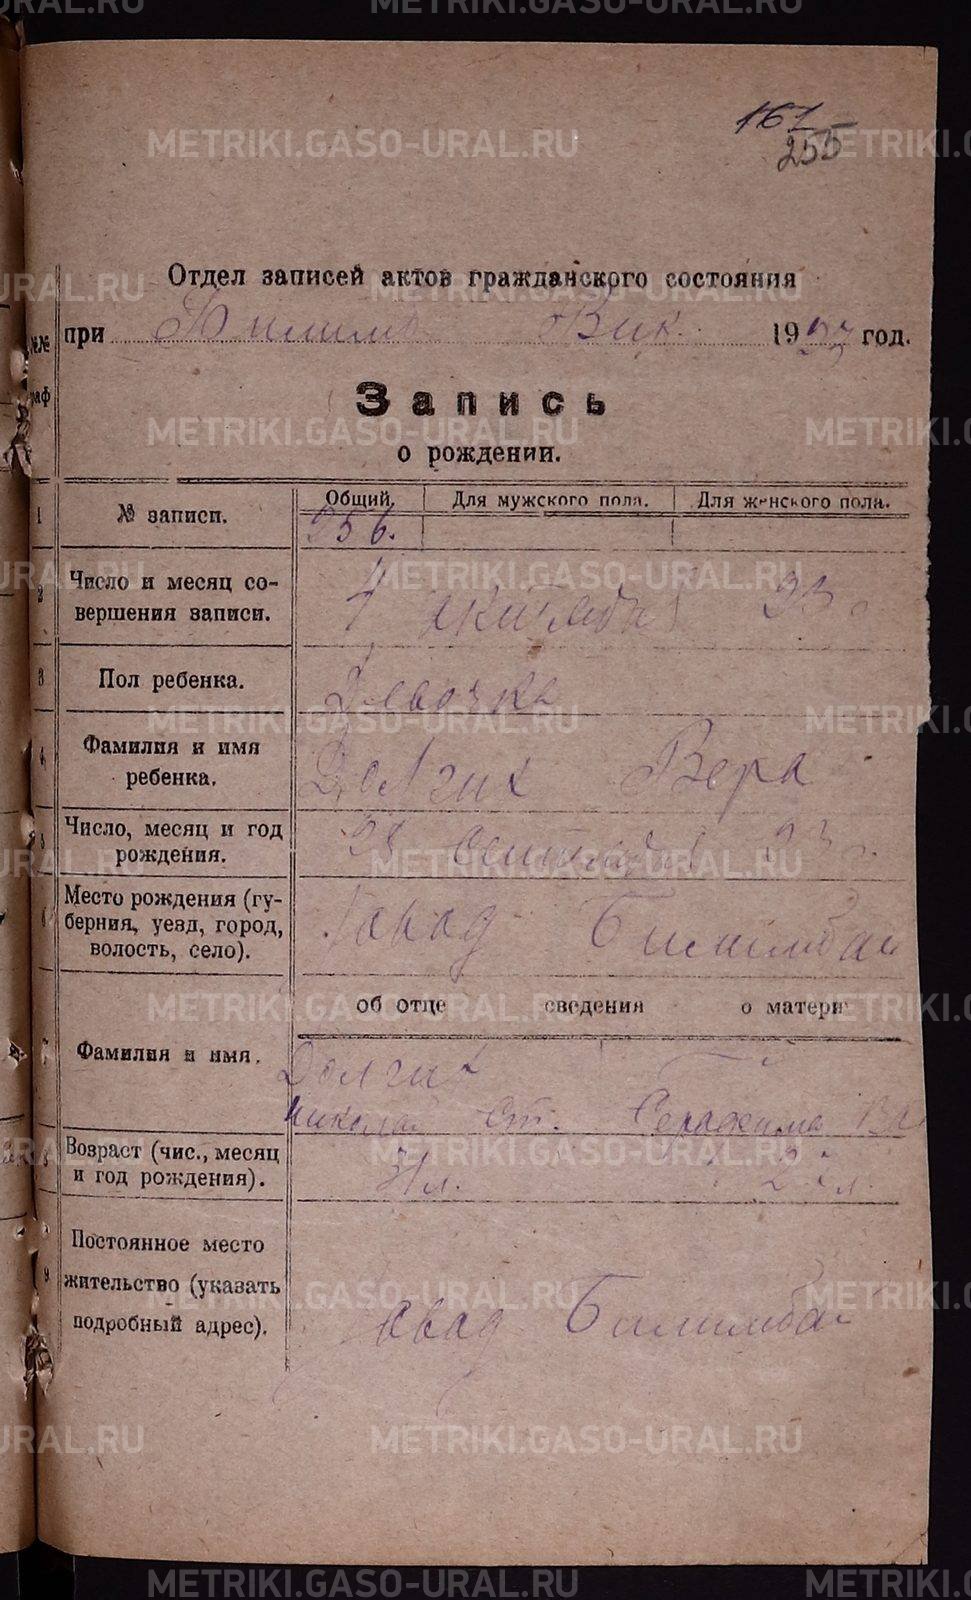 161
255
Отдел записей актов гражданского состояния
при Билимб Вик. 1923 год.
№№ граф
Запись
о рождении.
Общий. Для мужского пола. Для женского пола.
1 № записи. 256.
2 Число и месяц со-
вершения записи. 1 октября 23
3 Пол ребенка. Девочка
4 Фамилия и имя
ребенка. Долгих Вера
5 Число, месяц и год
рождения. 28 сентября 23 г.
6 Место рождения (гу-
берния, уезд, город,
волость, село). Завод Билимбай
об отце сведения о матери
7 Фамилия и имя. Долгих
Николай Ст. Серафима Ва
8 Возраст (чис., месяц
и год рождения). 31 л. л.
9 Постоянное место
жительство (указать
подробный адрес). Завод Билимбай
METRIKI.GASO-URAL.RU